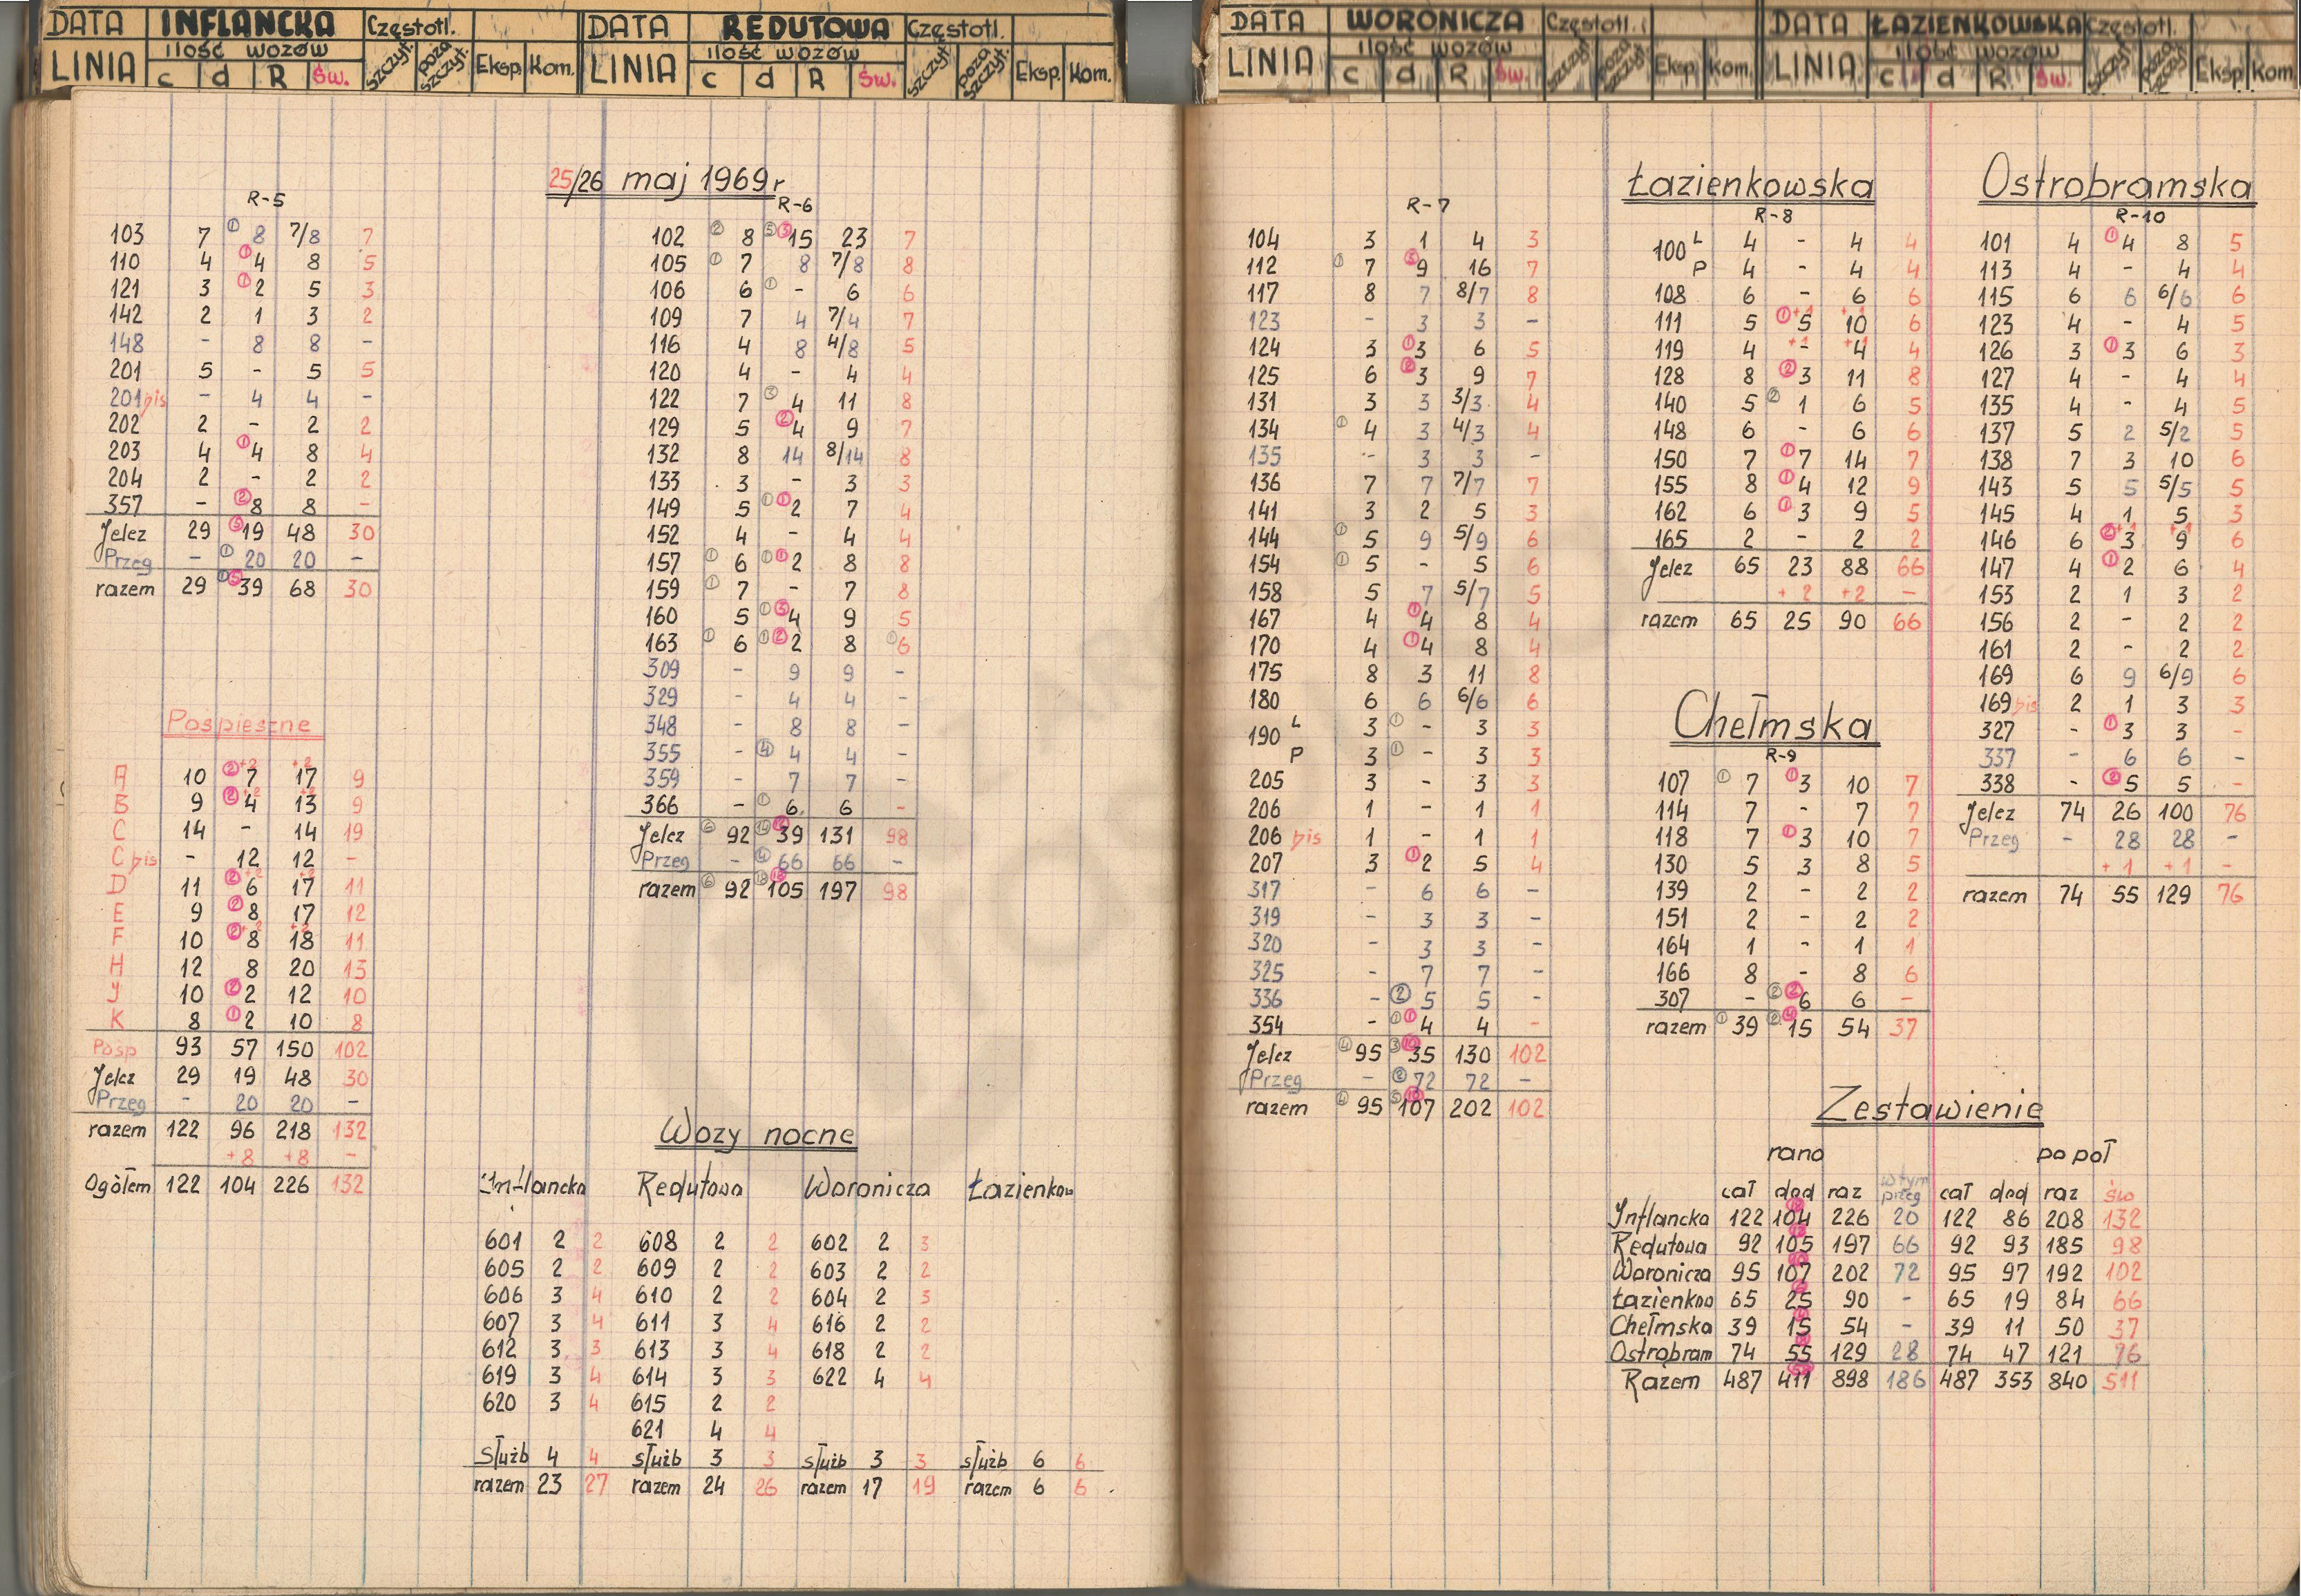 DATA INFLANCKA Częstotl.
LINIA ilość wozów c d R Św. szczyt. poza szczyt. Eksp. Kom.
DATA REDUTOWA Częstotl.
LINIA ilość wozów c d R Św. szczyt. poza szczyt. Eksp. Kom.
DATA WORONICZA Częstotl.
LINIA ilość wozów c d R Św. szczyt. poza szczyt. Eksp. Kom.
DATA ŁAZIENKOWSKA Częstotl.
LINIA ilość wozów c d R Św. szczyt. poza szczyt. Eksp. Kom.
25/26 maj 1969r
R-5
103 7 ① 8 7/8 7
110 4 ① 4 8 5
121 3 ① 2 5 3
142 2 1 3 2
148 - 8 8 -
201 5 - 5 5
201 bis - 4 4 -
202 2 - 2 2
203 4 ① 4 8 4
204 2 - 2 2
357 - ② 8 8 -
Jelcz 29 ⑤ 19 48 30
Przeg - ① 20 20 -
razem 29 ① ⑤ 39 68 30
Pośpieszne
A 10 ② 7 +2 17 +2 9
B 9 ② 4 +2 13 +2 9
C 14 - 14 19
C bis - 12 12 -
D 11 ② 6 +2 17 +2 11
E 9 ② 8 17 12
F 10 ② 8 +2 18 +2 11
H 12 8 20 13
J 10 ② 2 12 10
K 8 ① 2 10 8
Pośp 93 57 150 102
Jelcz 29 19 48 30
Przeg - 20 20 -
razem 122 96 218 132
+8 +8 -
Ogółem 122 104 226 132
R-6
102 ② 8 ⑤ ③ 15 23 7
105 ① 7 8 7/8 8
106 6 ① - 6 6
109 7 4 7/4 7
116 4 8 4/8 5
120 4 - 4 4
122 7 ③ 4 11 8
129 5 ② 4 9 7
132 8 14 8/14 8
133 3 - 3 3
149 5 ① ① 2 7 4
152 4 - 4 4
157 ① 6 ① ① 2 8 8
159 ① 7 - 7 8
160 5 ① ③ 4 9 5
163 ① 6 ① ② 2 8 ① 6
309 - 9 9 -
329 - 4 4 -
348 - 8 8 -
355 - ④ 4 4 -
359 - 7 7 -
366 - ① 6 6 -
Jelcz ⑥ 92 ⑭ ⑫ 39 131 98
Przeg - ④ 66 66 -
razem ⑥ 92 ⑱ ⑫ 105 197 98
Wozy nocne
Inflancka Redutowa Woronicza Łazienkow
601 2 2 608 2 2 602 2 3
605 2 2 609 2 2 603 2 2
606 3 4 610 2 2 604 2 3
607 3 4 611 3 4 616 2 2
612 3 3 613 3 4 618 2 2
619 3 4 614 3 3 622 4 4
620 3 4 615 2 2
621 4 4
służb 4 4 służb 3 3 służb 3 3 służb 6 6
razem 23 27 razem 24 26 razem 17 19 razem 6 6
R-7
104 3 1 4 3
112 ① 7 ⑤ 9 16 7
117 8 7 8/7 8
123 - 3 3 -
124 3 ① 3 6 5
125 6 ② 3 9 7
131 3 3 3/3 4
134 ① 4 3 4/3 4
135 - 3 3 -
136 7 7 7/7 7
141 3 2 5 3
144 ① 5 9 5/9 6
154 ① 5 - 5 6
158 5 7 5/7 5
167 4 ① 4 8 4
170 4 ① 4 8 4
175 8 3 11 8
180 6 6 6/6 6
190 L 3 ① - 3 3
P 3 ① - 3 3
205 3 - 3 3
206 1 - 1 1
206 bis 1 - 1 1
207 3 ① 2 5 4
317 - 6 6 -
319 - 3 3 -
320 - 3 3 -
325 - 7 7 -
336 - ② 5 5 -
354 - ① ① 4 4 -
Jelcz ④ 95 ③ 35 130 102
Przeg - ② 72 72 -
razem ④ 95 ⑤ 107 202 102
Łazienkowska
R-8
100 L 4 - 4 4
P 4 - 4 4
108 6 - 6 6
111 5 ① 5 +1 10 +1 6
119 4 - +1 4 +1 4
128 8 ② 3 11 8
140 5 ② 1 6 5
148 6 - 6 6
150 7 ① 7 14 7
155 8 ① 4 12 9
162 6 ① 3 9 5
165 2 - 2 2
Jelcz 65 23 88 66
+2 +2 -
razem 65 25 90 66
Chełmska
R-9
107 ① 7 ① 3 10 7
114 7 - 7 7
118 7 ① 3 10 7
130 5 3 8 5
139 2 - 2 2
151 2 - 2 2
164 1 - 1 1
166 8 - 8 6
307 - ② ② 6 6 -
razem ① 39 ② ④ 15 54 37
Ostrobramska
R-10
101 4 ① 4 8 5
113 4 - 4 4
115 6 6 6/6 6
123 4 - 4 5
126 3 ① 3 6 3
127 4 - 4 4
135 4 - 4 5
137 5 2 5/2 5
138 7 3 10 6
143 5 5 5/5 5
145 4 1 5 3
146 6 ② 3 +1 9 +1 6
147 4 ① 2 6 4
153 2 1 3 2
156 2 - 2 2
161 2 - 2 2
169 6 9 6/9 6
169 bis 2 1 3 3
327 - ① 3 3 -
337 - 6 6 -
338 - ② 5 5 -
Jelcz 74 26 100 76
Przeg - 28 28 -
+1 +1 -
razem 74 55 129 76
Zestawienie
rano po poł
cał dod raz w tym przeg cał dod raz św
Inflancka 122 104 226 20 122 86 208 132
Redutowa 92 105 197 66 92 93 185 98
Woronicza 95 107 202 72 95 97 192 102
Łazienkow 65 25 90 - 65 19 84 66
Chełmska 39 15 54 - 39 11 50 37
Ostrobram 74 55 129 28 74 47 121 76
Razem 487 411 898 186 487 353 840 511